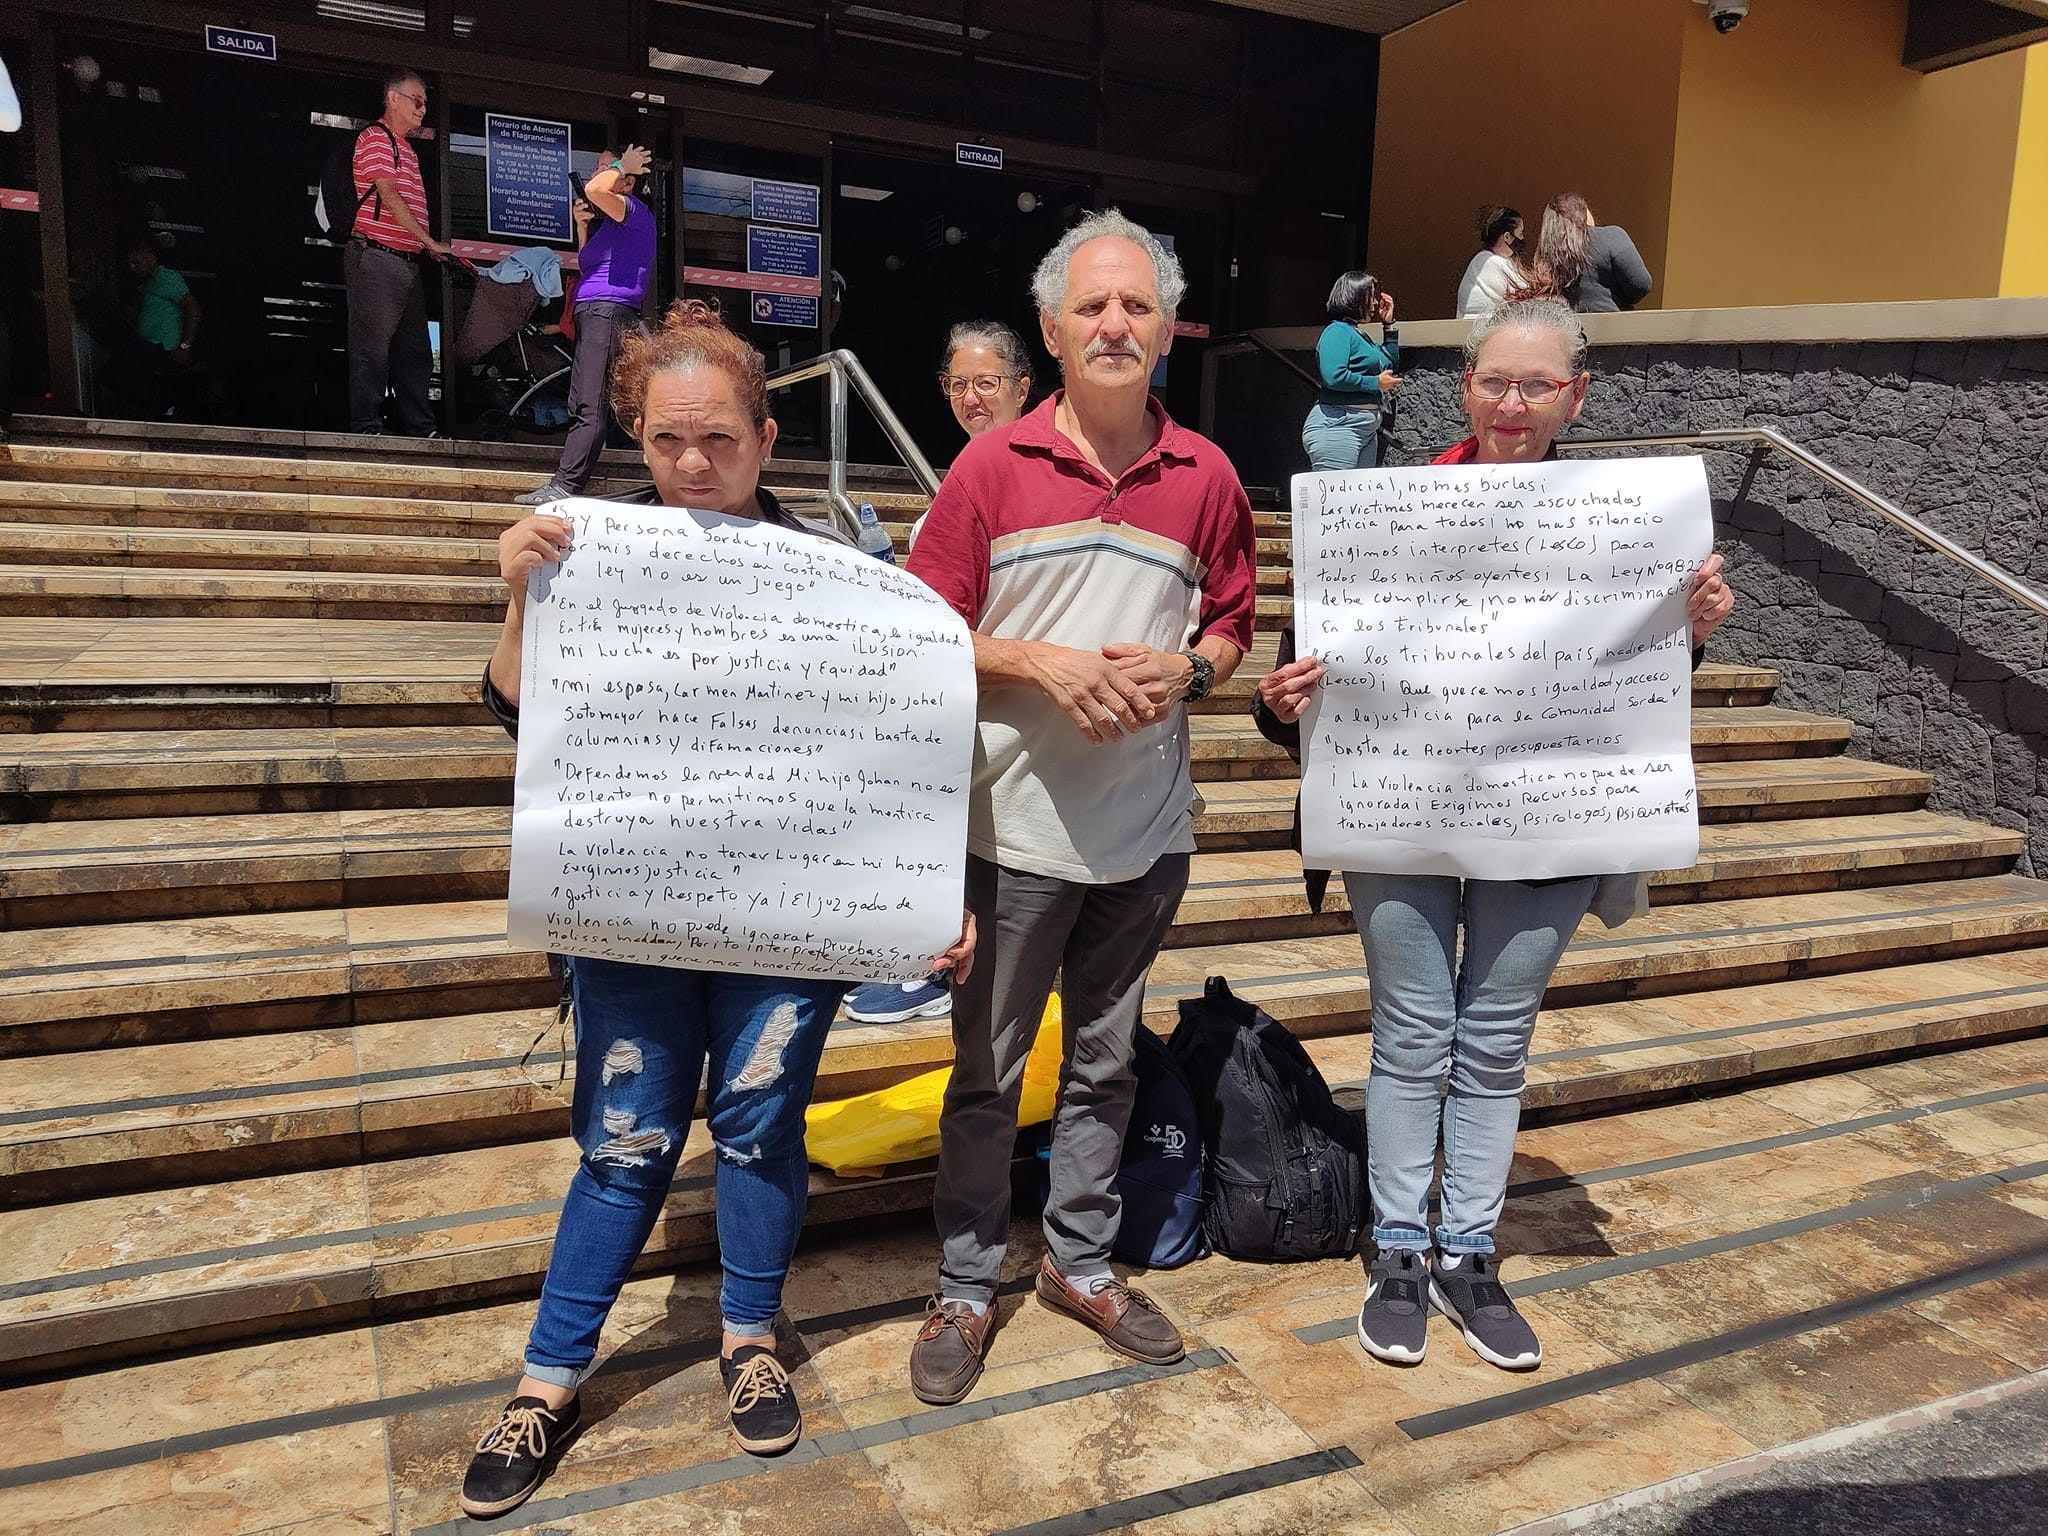 SALIDA
Horario de Atención
de Flagrancias:
Todos los días, fines de
semana y feriados
De 7:30 a.m. a 12:00 m.d.
De 1:00 p.m. a 4:30 p.m.
De 5:00 p.m. a 11:00 p.m.
Horario de Pensiones
Alimentarias:
De lunes a viernes
De 7:30 a.m. a 7:00 p.m.
(Jornada Continua)
ENTRADA
Horario de Recepción de
pertenencias para personas
privadas de libertad
Horario de Atención:
Jornada Continua
Jornada Continua
ATENCIÓN
"Soy persona Sorda y Vengo a protestar
Por mis derechos en Costa Rica Respetar
la ley no es un juego"
"En el Juzgado de Violencia domestica, la igualdad
Entre mujeres y hombres es una ilusion.
mi Lucha es por justicia y Equidad"
"Mi esposa, Carmen Martinez y mi hijo Johel
Sotomayor hace Falsas denuncias¡ basta de
calumnias y difamaciones"
"Defendemos la verdad Mi hijo Johan no es
Violento no permitimos que la mentira
destruya nuestra Vidas"
La violencia no tener Lugar en mi hogar:
Exigimos justicia"
"Justicia y Respeto ya ¡ El juzgado de
Violencia no puede ignorar Pruebas
Melissa Perito interprete (Lesco)
Psicologa, y queremos honestidad en el Proceso
Judicial, no mas burlas¡
Las victimas merecen ser escuchadas
justicia para todos¡ no mas silencio
exigimos interpretes (Lesco) para
todos los niños oyentes¡ La Ley Nº9822
debe cumplirse, ¡no más discriminación
En los tribunales"
"En los tribunales del país, nadie habla
(Lesco) ¡ Que queremos igualdad y acceso
a la justicia para la Comunidad Sorda"
"basta de Reortes presupuestarios
¡ La violencia domestica no puede ser
ignorada¡ Exigimos Recursos para
trabajadores Sociales, Psicologos, Psiquiatras"
Coopenae 50